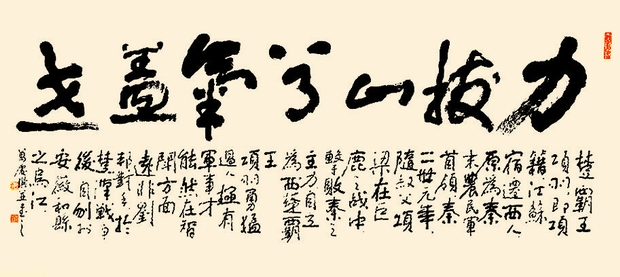 力拔山兮氣盖世
楚霸王
項羽即項
籍江蘇
宿遷西人
原為秦
末農民軍
首領秦
二世元年
隨叔父項
梁在巨
鹿之战中
擊敗秦
主力自立
為西楚霸
王
項羽勇猛
過人極有
軍事才
能然在智
鬪方面
遠非劉
邦對手於
楚漢战争
後自刎於
安徽和縣
之烏江